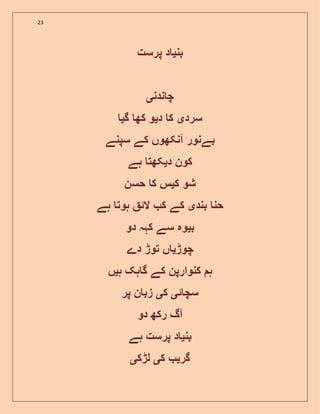 23
بنیاد پرست
چاندنی
سردی کا دیو کھا گیا
بےنور آنکھوں کے سپنے
کون دیکھتا ہے
شو کیس کا حسن
حنا بندی کے کب لائق ہوتا ہے
بیوہ سے کہہ دو
چوڑیاں توڑ دے
ہم کنوارپن کے گاہک ہیں
سچائی کی زبان پر
آگ رکھ دو
بنیاد پرست ہے
گریب کی لڑکی